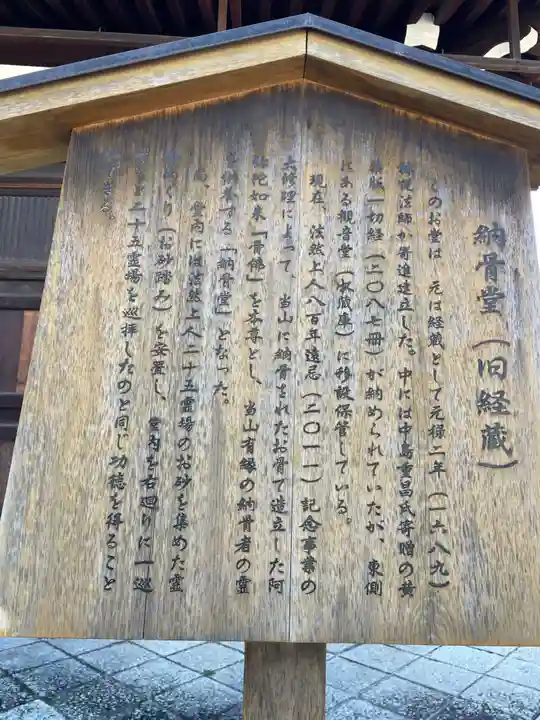 納骨堂（旧経蔵）
このお堂は、元は経蔵として元禄二年（一六八九）
法師が寄進建立した。中には中島重昌氏寄贈の黄
版一切経（二〇八七冊）が納められていたが、東側
にある観音堂（収蔵庫）に移設保管している。
現在、法然上人八百年遠忌（二〇一一）記念事業の
大修理によって、当山に納骨されたお骨で造立した阿
弥陀如来「骨佛」を本尊とし、当山有縁の納骨者の霊
を供養する「納骨堂」となった。
尚、堂内には法然上人二十五霊場のお砂を集めた霊
めぐり（お砂踏み）を安置し、堂内を右廻りに一巡
二十五霊場を巡拝したのと同じ功徳を得ること